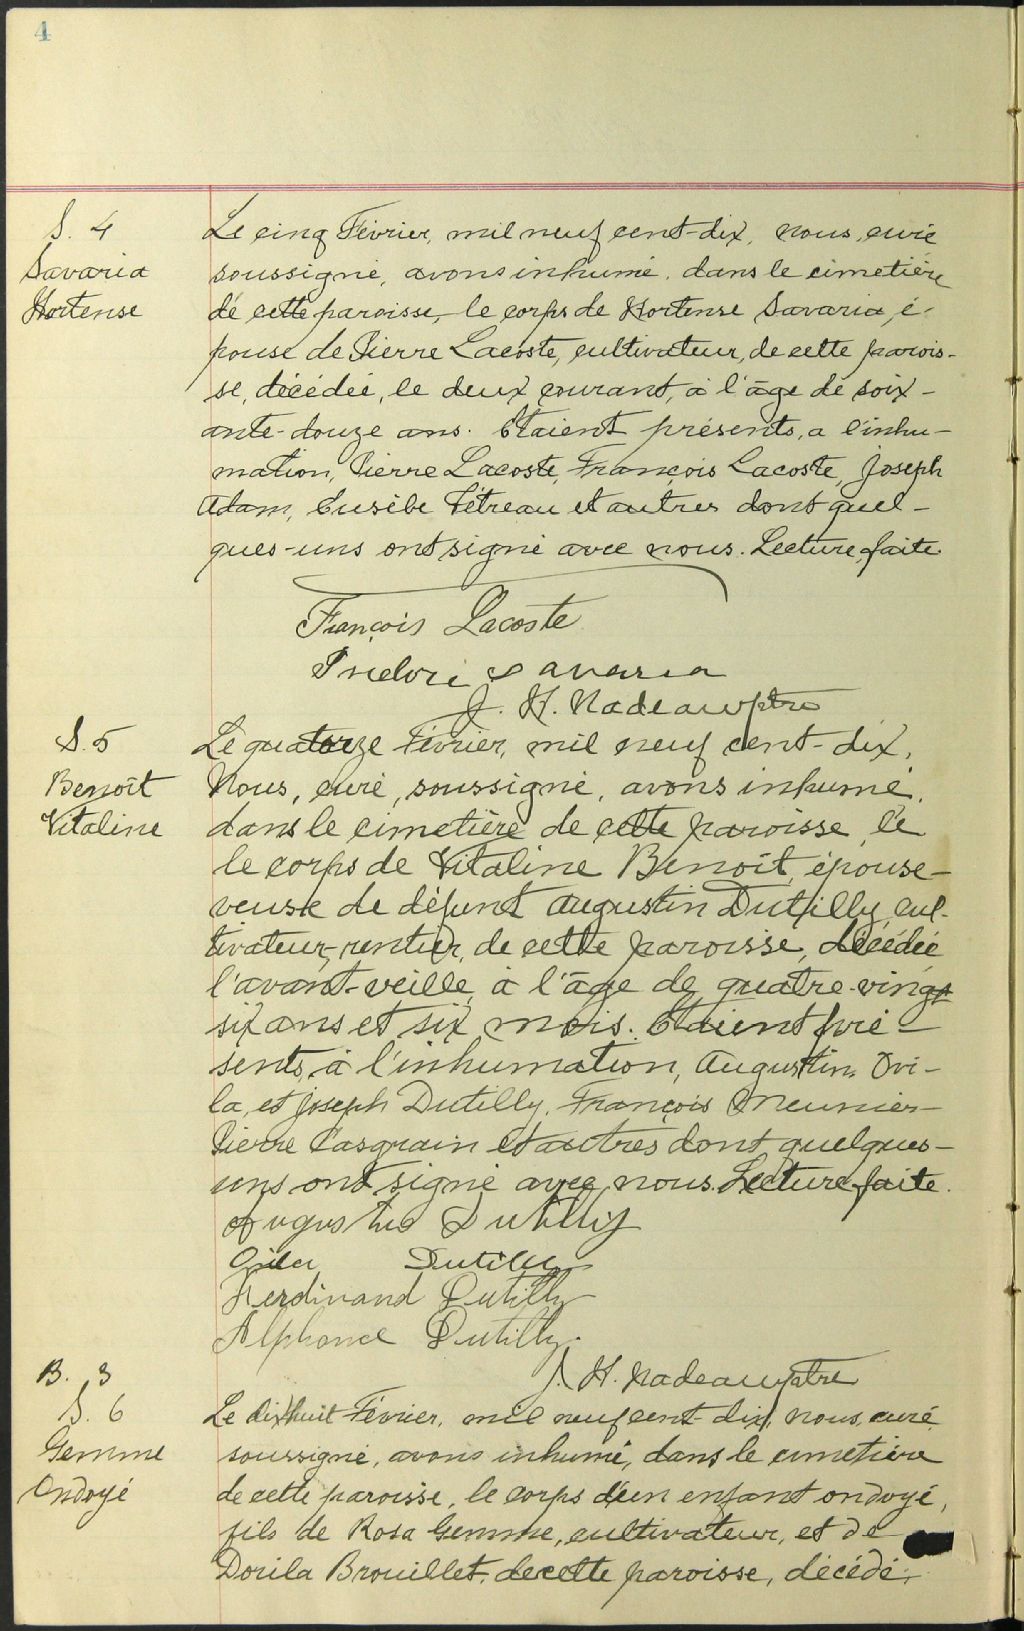 4
S. 4
Savaria
Hortense
Le cinq Février, mil neuf cent-dix, nous, curé
soussigné, avons inhumé, dans le cimetière
de cette paroisse, le corps de Hortense Savaria, é-
pouse de Pierre Lacoste, cultivateur, de cette parois-
se, décédée, le deux courant, à l'âge de soix-
ante-douze ans. Etaient présents, a l'inhu-
mation, Pierre Lacoste, François Lacoste, Joseph
Adam, Eusèbe Tétreau et autres dont quel-
ques-uns ont signé avec nous. Lecture faite.
François Lacoste
Isidore Savaria
J. H. Nadeau ptre
S. 5
Benoît
Vitaline
Le quatorze Février, mil neuf cent-dix,
Nous, curé, soussigné, avons inhumé,
dans le cimetière de cette paroisse, le
le corps de Vitaline Benoît, épouse-
veuve de défunt Augustin Dutilly, cul-
tivateur-rentier, de cette paroisse, décédée
l'avant-veille, à l'âge de quatre-vingt
six ans et six mois. Etaient pré-
sents, à l'inhumation, Augustin, Ovi-
la, et Joseph Dutilly, François Meunier-
Pierre Casgrain et autres dont quelques-
uns ont signé avec nous. Lecture faite.
Dutilly
Dutilly
Ferdinand Dutilly
Alphonce Dutilly.
J. H. Nadeau ptre
B. 3
S. 6
Gemme
Ondoyé
Le dixhuit Février, mil neuf cent-dix, nous, curé
soussigné, avons inhumé, dans le cimetière
de cette paroisse, le corps d'un enfant ondoyé,
fils de Rosa Gemme, cultivateur, et de
Dorila Brouillet, de cette paroisse, décédé,